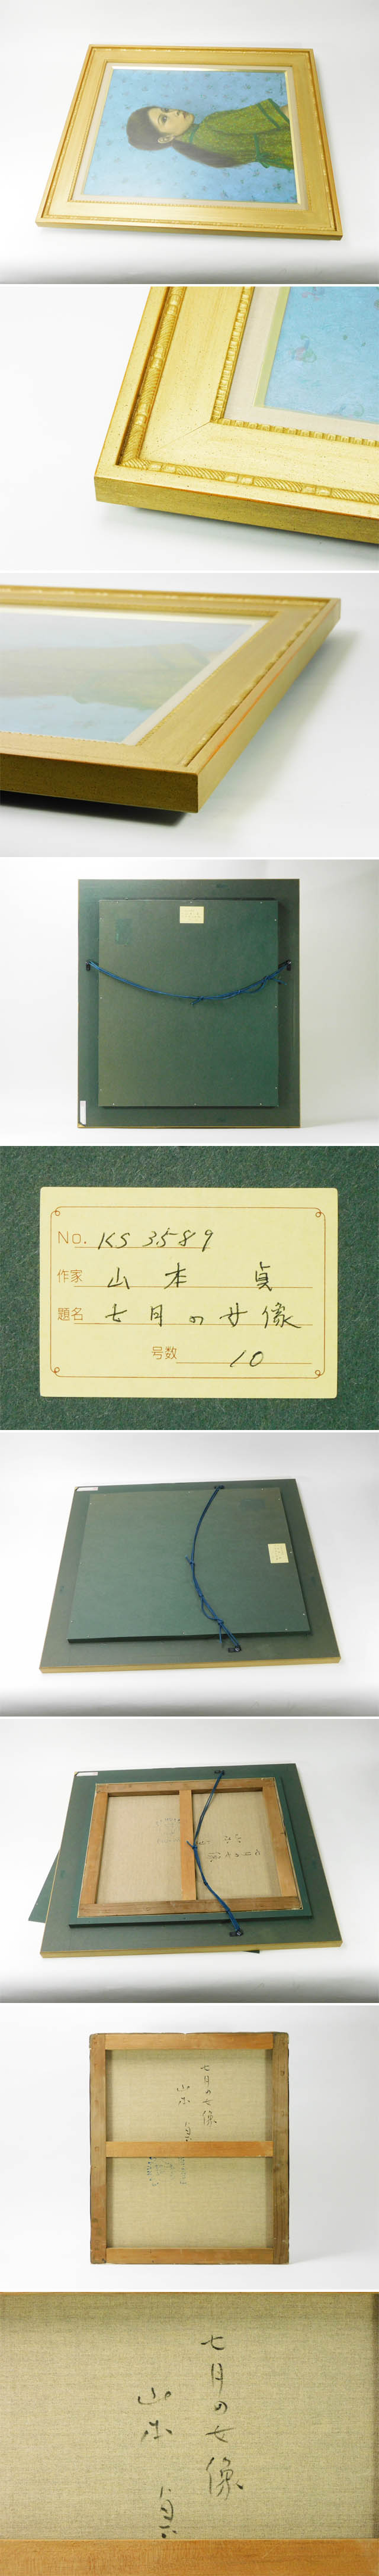 No. KS 3589
作家 山本 貞
題名 七月の女像
号数 10
七月の女像
山本 貞
七月の女像
山本 貞